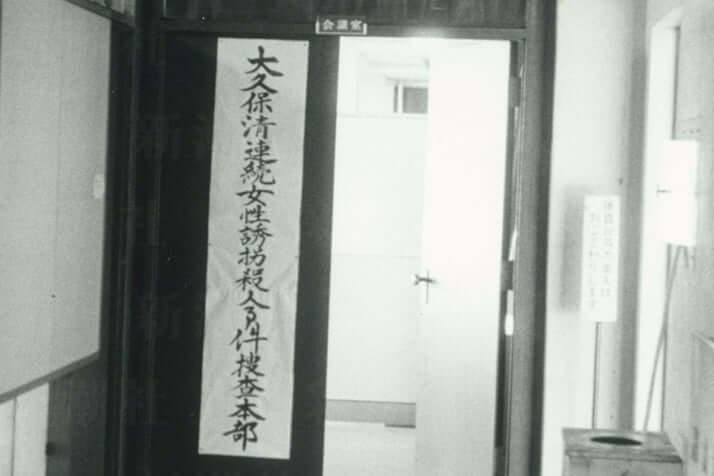 会議室
大久保清連続女性誘拐殺人事件捜査本部